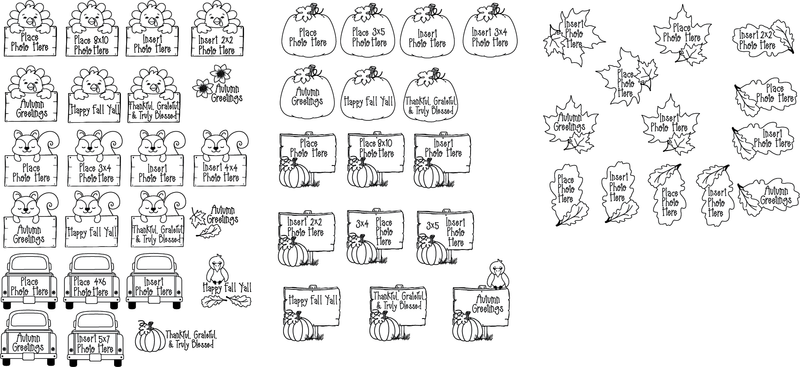 Place
Photo Here
Place 8x10
Photo Here
Insert
Photo Here
Insert 2x2
Photo Here
Autumn
Greetings
Happy Fall Y'all
Thankful, Grateful,
& Truly Blessed
Autumn
Greetings
Place
Photo Here
Place 3x4
Photo Here
Insert
Photo Here
Insert 4x4
Photo Here
Autumn
Greetings
Happy Fall Y'all
Thankful, Grateful,
& Truly Blessed
Autumn
Greetings
Place
Photo Here
Place 4x6
Photo Here
Insert
Photo Here
Happy Fall Y'all
Autumn
Greetings
Insert 5x7
Photo Here
Thankful, Grateful,
& Truly Blessed
Place
Photo Here
Place 3x5
Photo Here
Insert
Photo Here
Insert 3x4
Photo Here
Autumn
Greetings
Happy Fall Y'all
Thankful, Grateful,
& Truly Blessed
Place
Photo Here
Place 8x10
Photo Here
Insert
Photo Here
Insert 2x2
Photo Here
3x4 Place
Photo
Here
3x5 Insert
Photo
Here
Happy Fall Y'all
Thankful, Grateful,
& Truly Blessed
Autumn
Greetings
Insert
Photo
Here
Place
Photo Here
Insert 2x2
Photo Here
Place
Photo
Here
Place
Photo Here
Autumn
Greetings
Insert
Photo Here
Insert
Photo Here
Place
Photo
Here
Insert
Photo
Here
Place
Photo
Here
Insert
Photo
Here
Autumn
Greetings